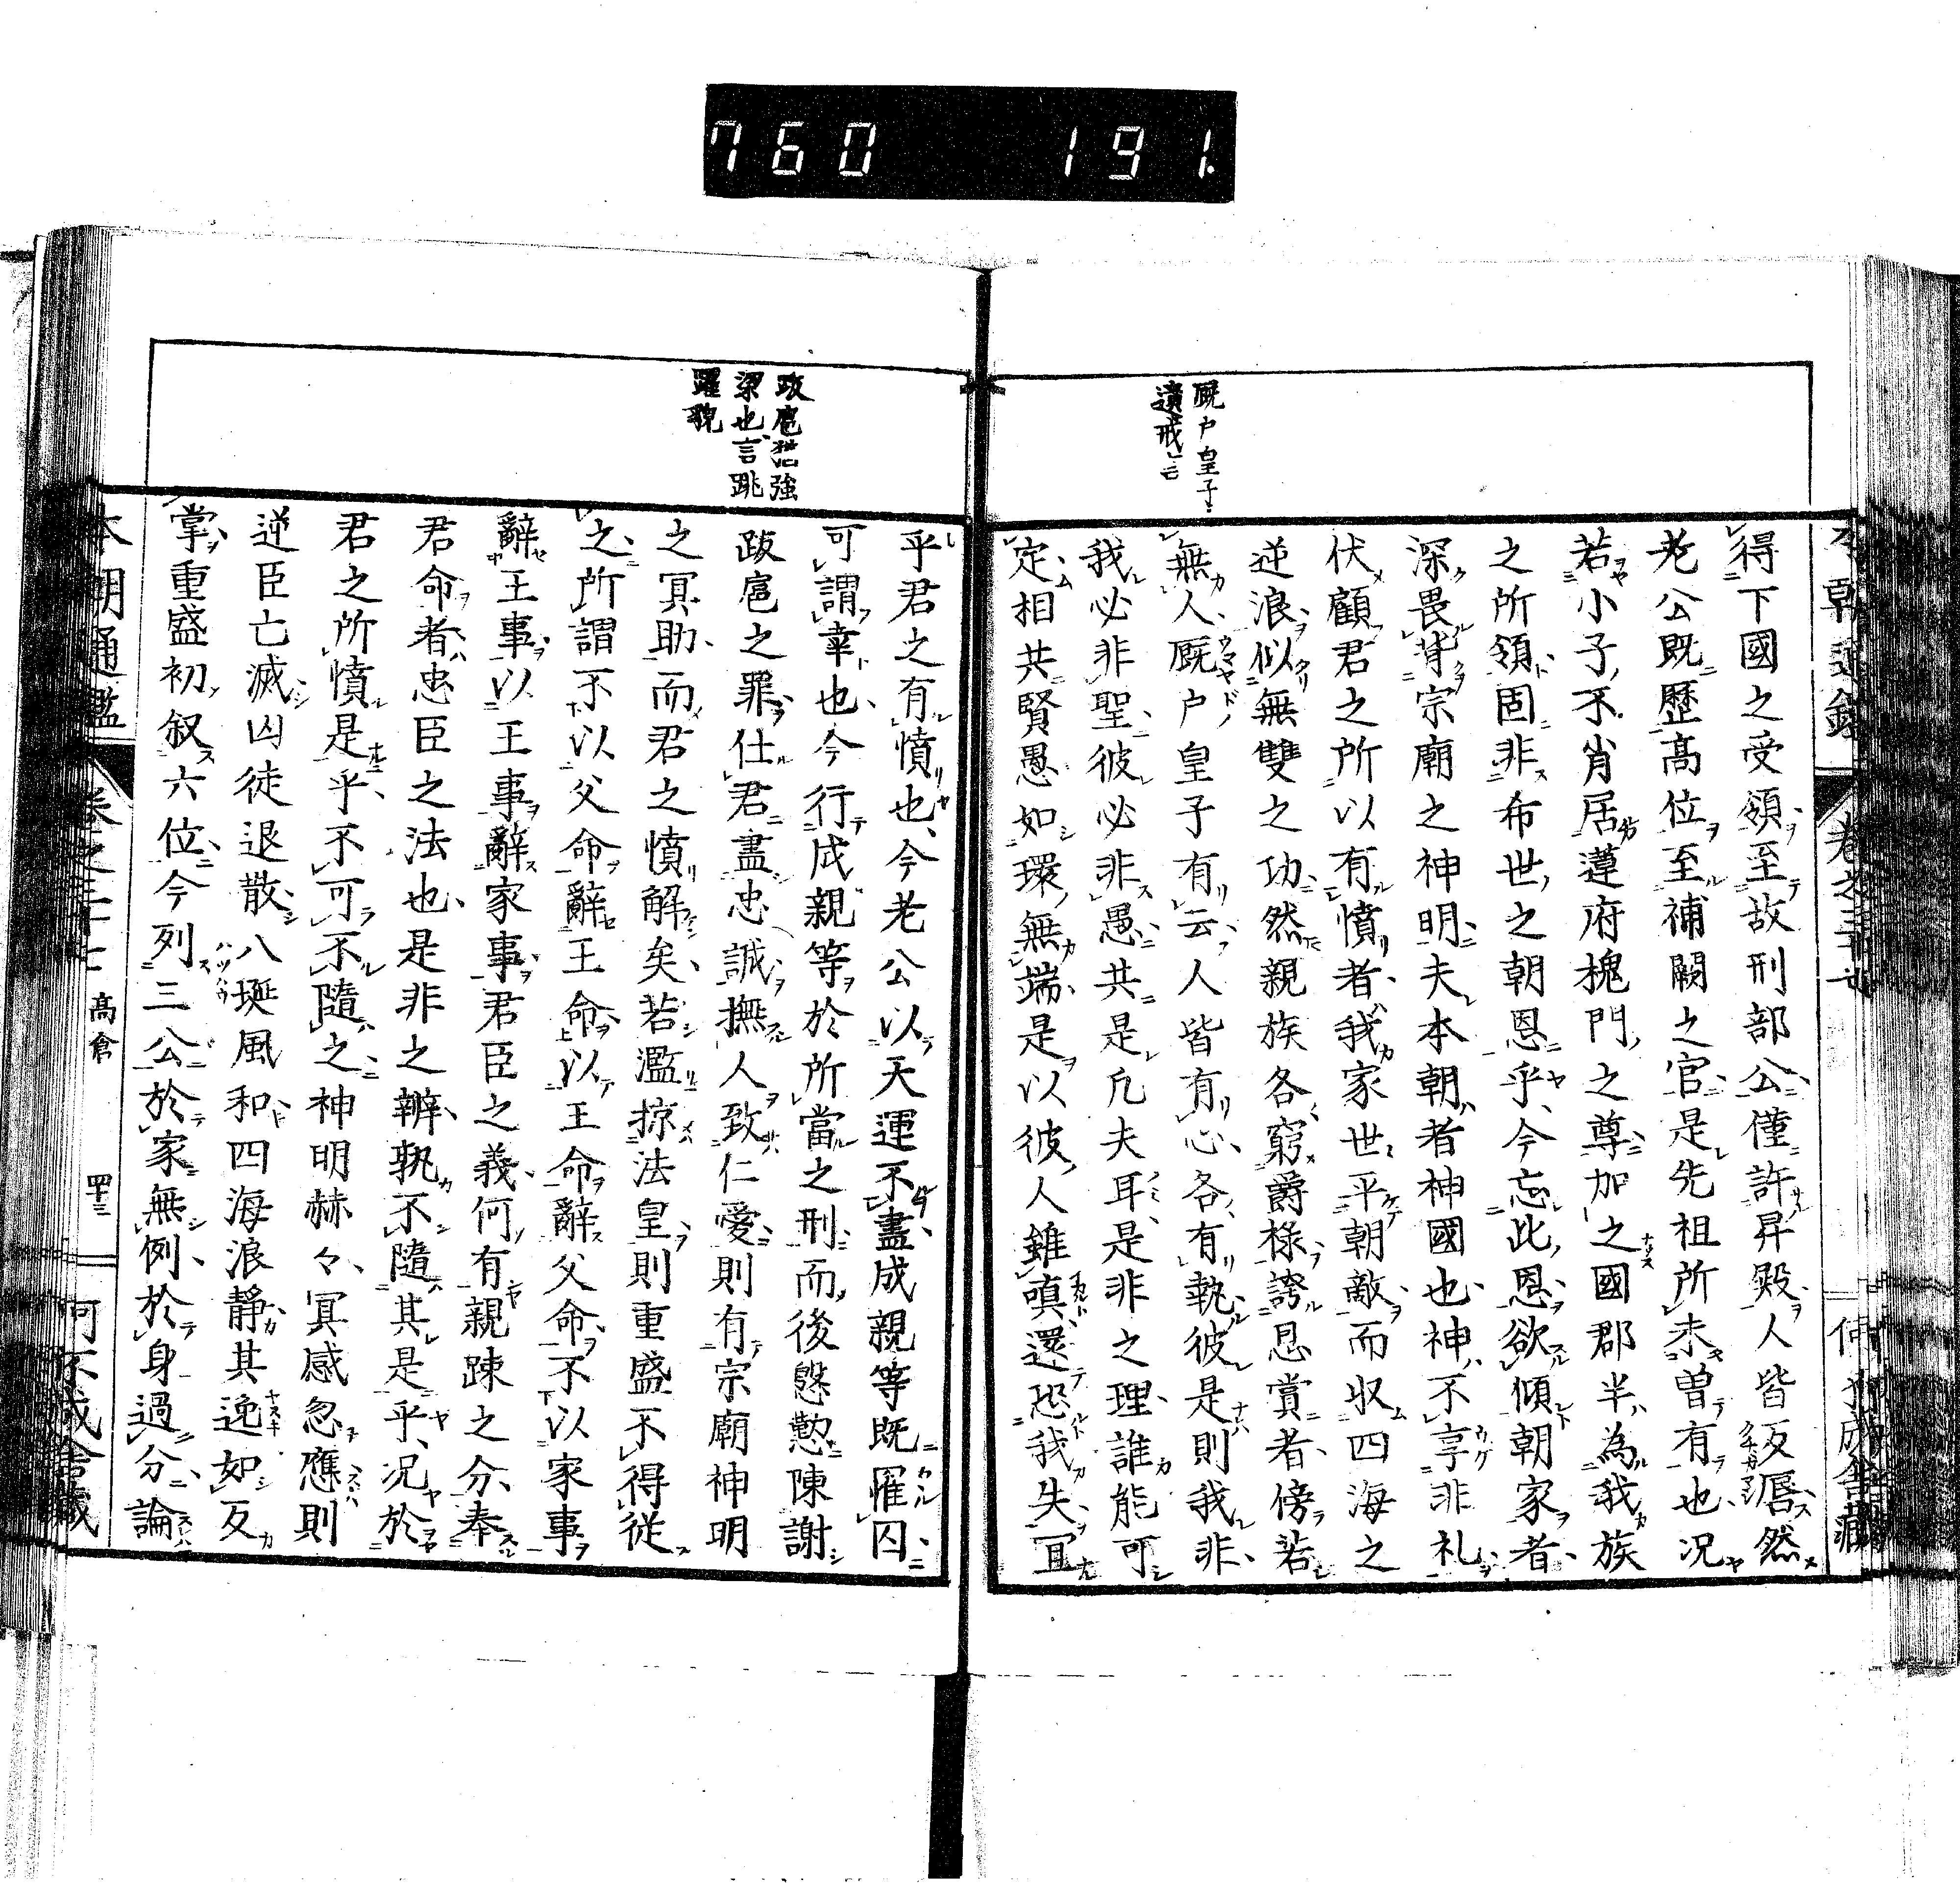 760 191
厩戸皇子
遺戒云
得下國之受領至故刑部公僅許昇殿人皆反脣然
老公既歴髙位至補闕之官是先祖所未曽有也况
若小子不肖居蓮府槐門之尊加之國郡半為我族
之所領固非希世之朝恩乎今忘此恩欲傾朝家者
深畏背宗廟之神明夫本朝者神國也神不享非礼
伏顧君之所以有憤者我家世平朝敵而収四海之
逆浪似無雙之功然親族各窮爵禄誇恩賞者傍若
無人厩戸皇子有云人皆有心各有執彼是則我非
我必非聖彼必非愚共是凡夫耳是非之理誰能可
定相共賢愚如環無端是以彼人雖嗔還恐我失冝
跋扈猶強
梁也言跳
躍貌
乎君之有憤也今老公以天運不盡成親等既罹囚
可謂幸也今行成親等於所當之刑而後慇懃陳謝
跋扈之罪仕君盡忠誠撫人致仁愛則有宗廟神明
之冥助而君之憤解矣若濫掠法皇則重盛不得従
之所謂不以父命辭王命以王命辭父命不以家事
辭王事以王事辭家事君臣之義何有親踈之分奉
君命者忠臣之法也是非之辧孰不隨其是乎况於
君之所憤是乎不可不隨之神明赫々冥感忽應則
逆臣亡滅凶徒退散八埏風和四海浪静其逸如反
掌重盛初叙六位今列三公於家無例於身過分論
本朝通鑑 髙倉 四十三